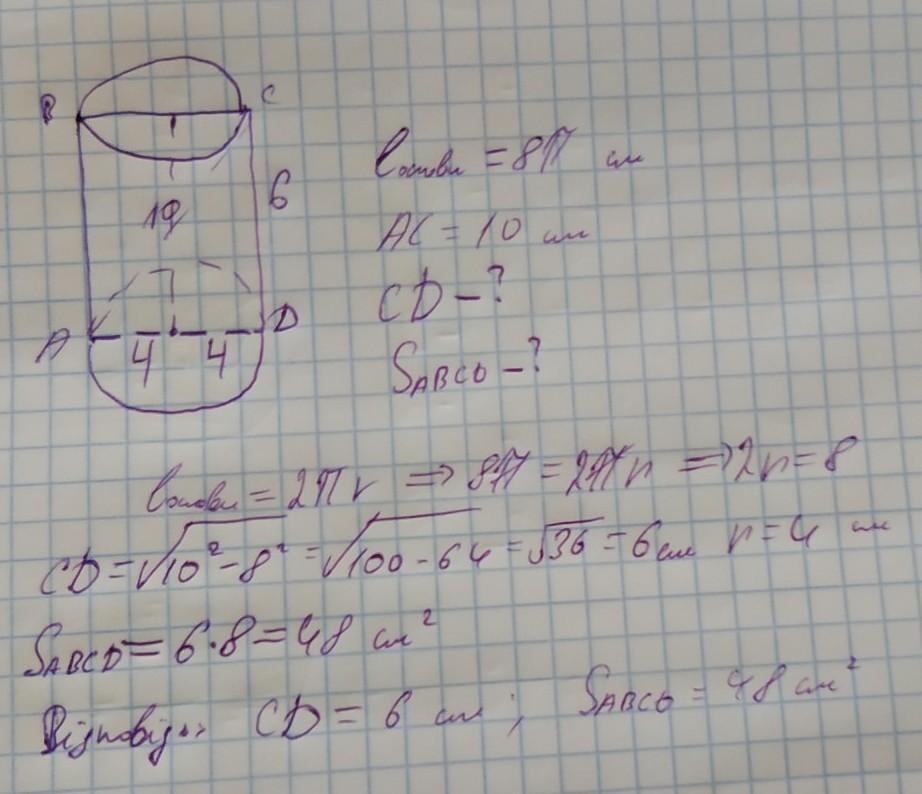 B C
6
10
A D
4 4
lоснови = 8π см
AC = 10 см
CD - ?
SABCD - ?
lоснови = 2πr ⇒ 8π = 2πr ⇒ 2r = 8
CD = √10² - 8² = √100 - 64 = √36 = 6 см r = 4 см
SABCD = 6 · 8 = 48 см²
Відповідь: CD = 6 см; SABCD = 48 см²